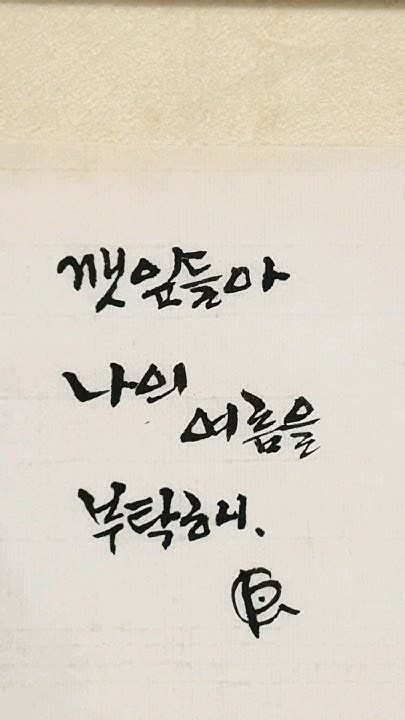 깻잎들아
나의
여름을
부탁해.